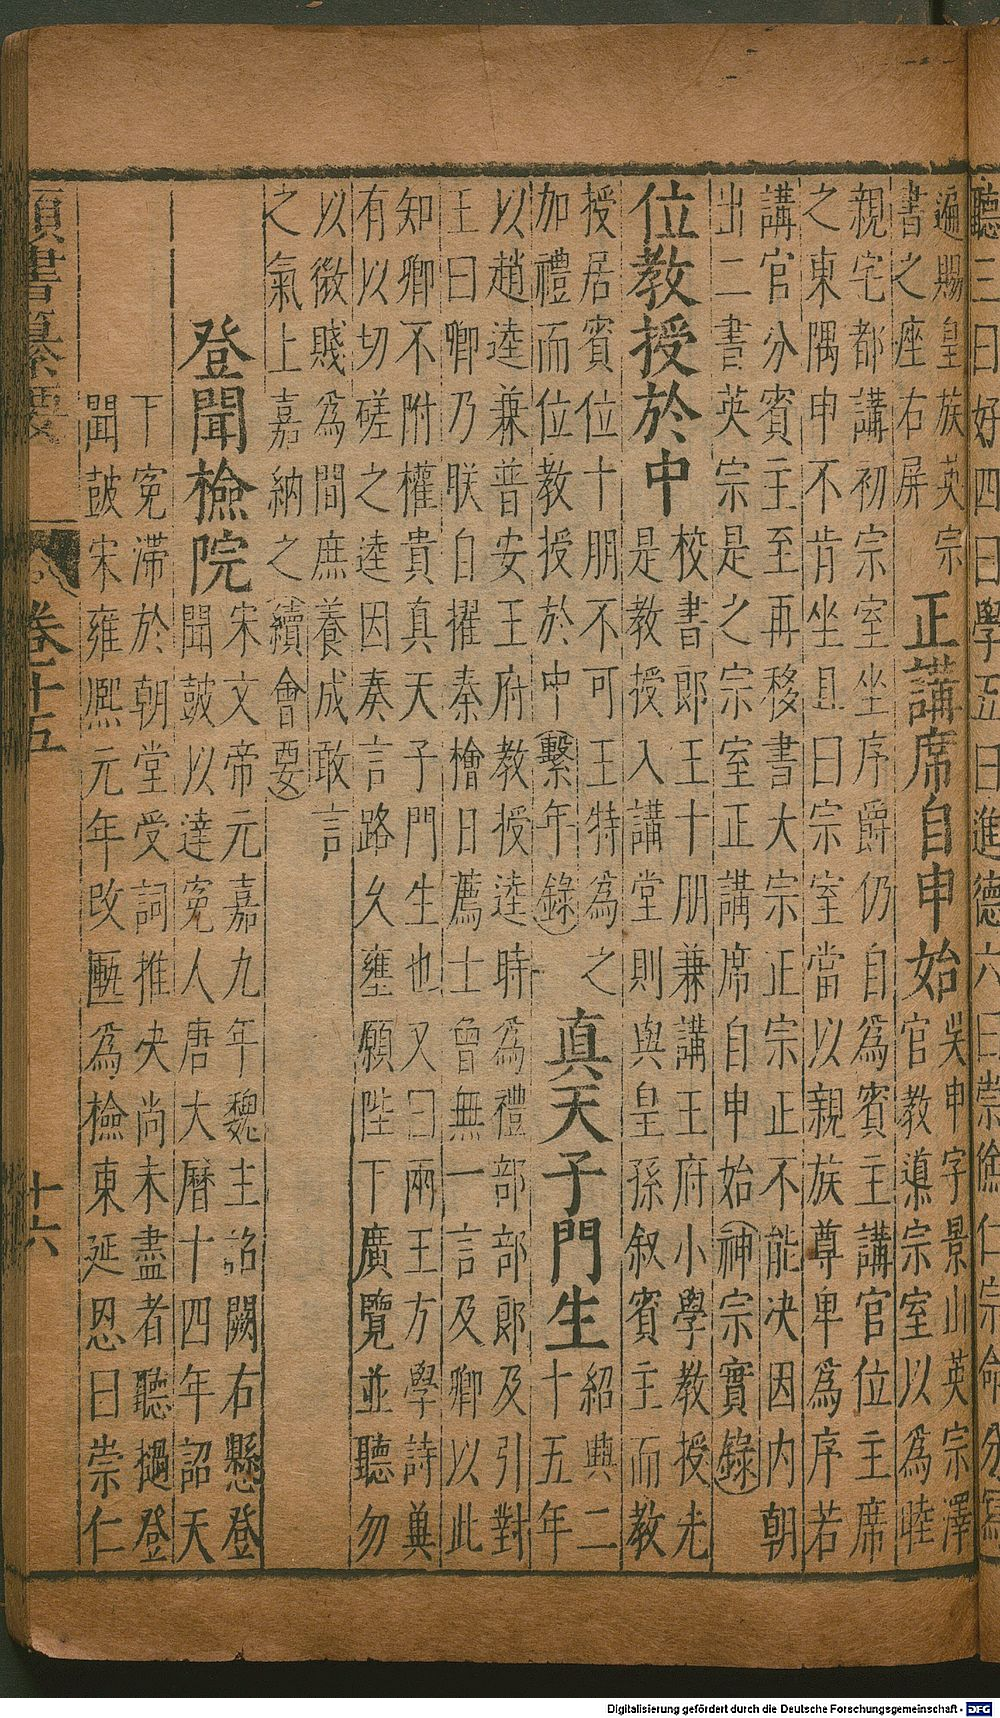 聽三曰好四曰學五曰進德六曰崇儉仁宗命分寫
遍賜皇族英宗
書之座右屏
正講席自申始
吳申字景山英宗澤
官教導宗室以爲睦
親宅都講初宗室坐序爵仍自爲賓主講官位主席
之東隅申不肯坐且曰宗室當以親族尊卑爲序若
講官分賓主至再移書大宗正宗正不能决因内朝
出二書英宗是之宗室正講席自申始神宗實錄
位教授於中
校書郎王十朋兼講王府小學教授先
是教授入講堂則與皇孫叙賓主而教
授居賓位十朋不可王特爲之
加禮而位教授於中繫年錄
真天子門生
紹興二
十五年
以趙逵兼普安王府教授逵時爲禮部部郎及引對
王曰卿乃朕自擢秦檜日薦士曾無一言及卿以此
知卿不附權貴真天子門生也又曰兩王方學詩兾
有以切磋之逵因奏言路乆壅願陛下廣覽並聽勿
以微賤爲間庶養成敢言
之氣上嘉納之續會要
登聞檢院
宋文帝元嘉九年魏主詔闕右懸登
聞鼓以達寃人唐大曆十四年詔天
下寃滯於朝堂受詞推决尚未盡者聽撾登
聞鼓宋雍熈元年改匭爲檢東延恩曰崇仁
類書纂要
卷二十五
十六
Digitalisierung gefördert durch die Deutsche Forschungsgemeinschaft - DFG